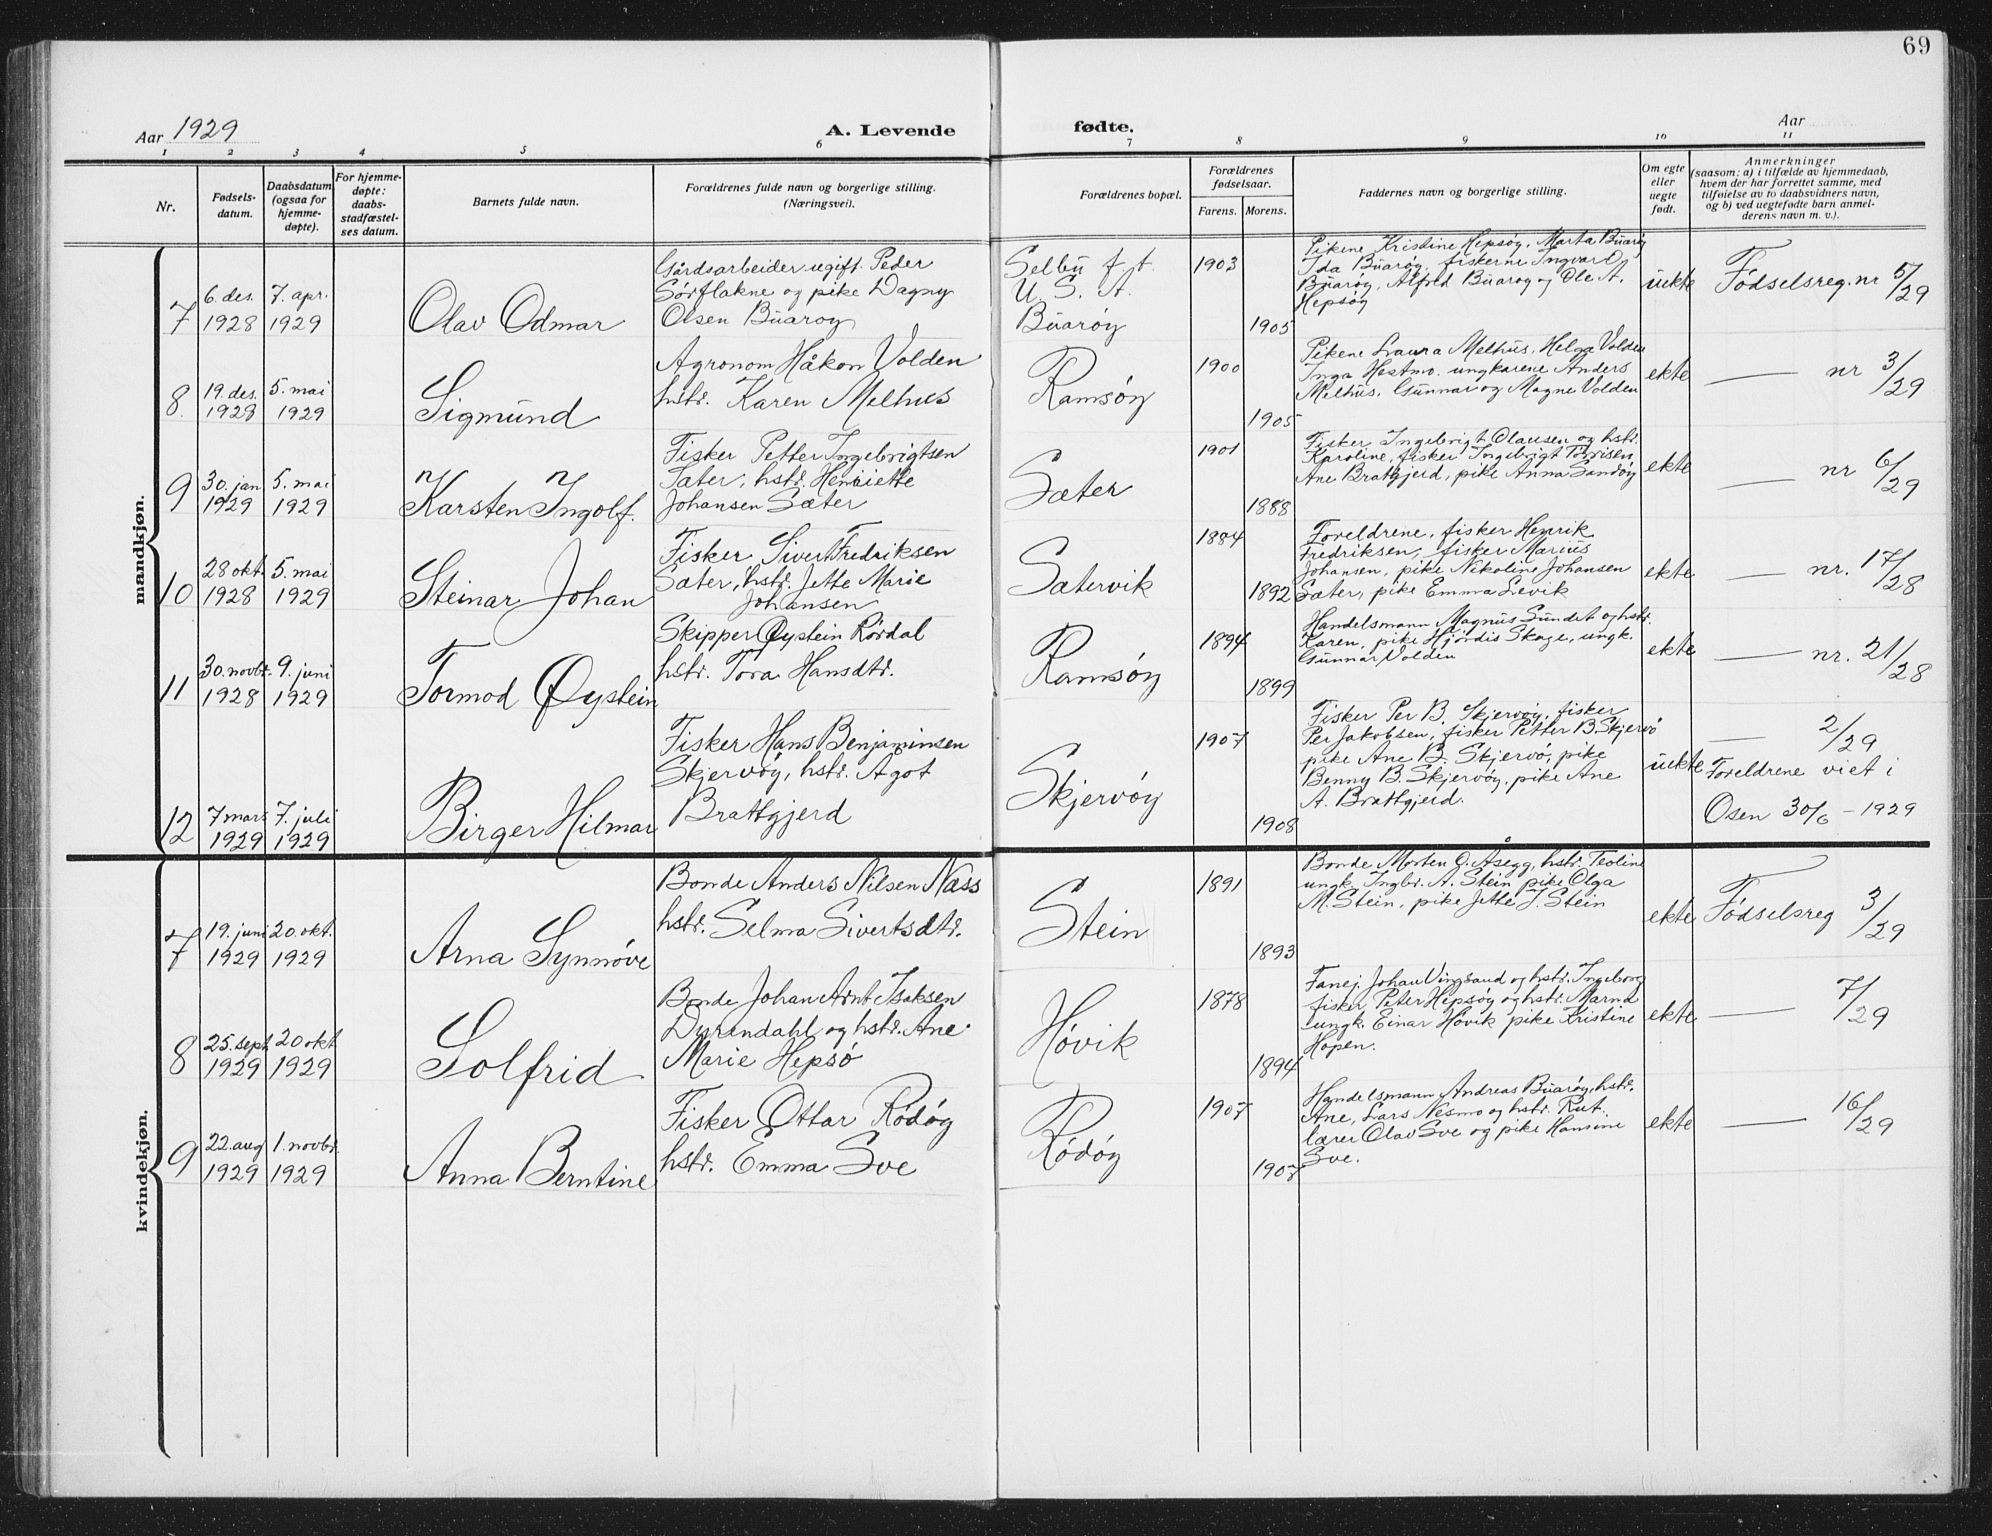 69
Aar 1929
A. Levende fødte.
Aar
1 2 3 4 5 6 7 8 9 10 11
Nr.
Fødsels-
datum.
Daabsdatum
(ogsaa for
hjemme-
døpte).
For hjemme-
døpte:
daabs-
stadfæstel-
ses datum.
Barnets fulde navn.
Forældrenes fulde navn og borgerlige stilling.
(Næringsvei).
Forældrenes bopæl.
Forældrenes
fødselsaar.
Farens. Morens.
Faddernes navn og borgerlige stilling.
Om egte
eller
uegte
født.
Anmerkninger
(saasom: a) i tilfælde av hjemmedaab,
hvem der har forrettet samme, med
tilføielse av to daabsvidners navn,
og b) ved uegtefødte barn anmel-
derens navn m. v.).
mandkjøn.
7
6. des.
1928
7. apr.
1929
Olav Odmar
Gårdsarbeider ugift Peder
Sörflakne og pike Dagny
Olsen Buarøy
Selbu f. t.
U. S. A.
Buarøy
1903
1905
Pikene Kristine Hepsøy, Marta Buarøy
Ida Buarøy, fiskerne Ingvard
Buarøy, Alfred Buarøy og Ole A.
Hepsøy
uekte
Fødselsreg. nr 5/29
8
19. des.
1928
5. mai
1929
Sigmund
Agronom Håkon Volden
hstr. Karen Melhus
Ramsöy
1900
1905
Pikene Laura Melhus, Helga Volden
Inga Hestmo. ungkarene Anders
Melhus, Gunnar og Magne Volden
ekte
— nr 3/29
9
30. jan
1929
5. mai
1929
Karsten Ingolf.
Fisker Petter Ingebrigtsen
Sæter, hstr. Henriette
Johansen Sæter
Sæter
1901
1888
Fisker Ingebrigt Olausen og hstr.
Karoline, fisker Ingebrigt Torrisen
Ane Brattgjerd, pike Anna Sandøy
ekte
— nr 6/29
10
28 okt.
1928
5. mai
1929
Steinar Johan
Fisker Sivert Fredriksen
Sæter, hstr. Jette Marie
Johansen
Sætervik
1884
1892
Foreldrene, fisker Henrik
Fredriksen, fisker Marius
Johansen, pike Nikoline Johansen
Sæter, pike Emma Levik
ekte
— nr. 17/28
11
30. novbr.
1928
9. juni
1929
Tormod Øystein
Skipper Øystein Rørdal
hstr. Tora Hansdtr.
Ramsöy
1894
1899
Handelsmann Magnus Sundet og hstr.
Karen, pike Hjørdis Skage, ungk.
Gunnar Volden
ekte
— nr. 21/28
12
7 mars
1929
7. juli
1929
Birger Hilmar
Fisker Hans Benjaminsen
Skjervöy, hstr. Agot
Brattgjerd
Skjervöy
1907
1908
Fisker Per B. Skjervöy, fisker
Per Jakobsen, fisker Petter B. Skjervö
pike Ane B. Skjervö, pike
Benny B. Skjervöy, pike Ane
A. Brattgjerd.
uekte
— 2/29
Foreldrene viet i
Osen 30/6 - 1929
kvindekjøn.
7
19. juni
1929
20. okt.
1929
Arna Synnöve
Bonde Anders Nilsen Næss
hstr. Selma Sivertsdtr.
Stein
1891
1893
Bonde Morten O. Åsegg, hstr. Teoline
ungk. Ingbr. A. Stein pike Olga
M. Stein, pike Jette J. Stein
ekte
Fødselsreg 3/29
8
25. sept
1929
20 okt
1929
Solfrid
Bonde Johan Arnt Isaksen
Dyrendahl og hstr. Ane
Marie Hepsö
Hövik
1878
1894
Fanej. Johan Vingsand og hstr. Ingeborg
fisker Peter Hepsöy og hstr. Marna
ungk. Einar Hövik pike Kristine
Hopen.
ekte
— 7/29
9
22. aug
1929
1. novbr.
1929
Anna Berntine
Fisker Ottar Rödöy
hstr. Emma Sve
Rödöy
1907
1907
Handelsmann Andreas Buaröy, hstr.
Ane, Lars Nesmo og hstr. Rut.
lærer Olav Sve og pike Hansine
Sve.
ekte
— 16/29